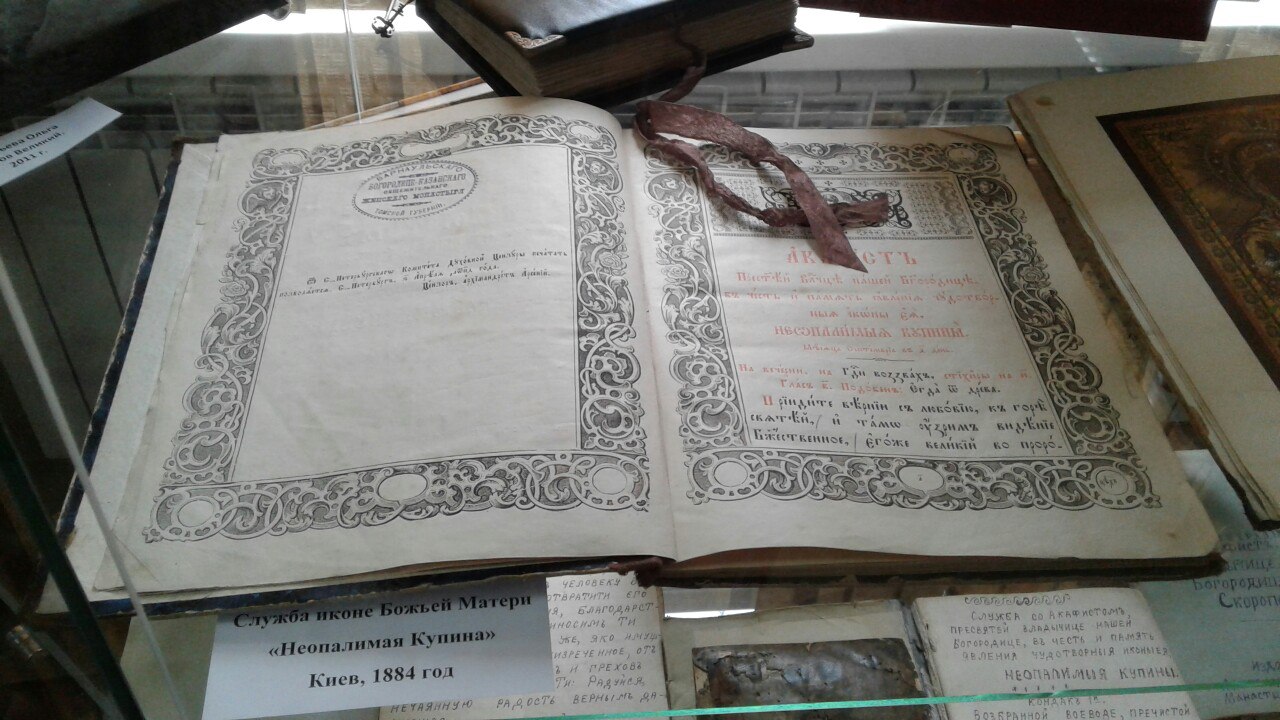 ьева Ольга
ов Великий.
2011 г.
БАРНАУЛЬСКАГО
БОГОРОДИЦЕ-КАЗАНСКАГО
ОБЩЕЖИТЕЛЬНАГО
ЖЕНСКАГО МОНАСТЫРЯ
ТОМСКОЙ ГУБЕРНІИ
Ѿ С.-Петербургскагѡ Комитета Духовной Цензуры печатать
позволяется. С.-Петербургъ, Апрѣля года.
Цензоръ, архімандрітъ Арсеній.
Прест҃ѣй влⷣчцѣ нашей бг҃ородицѣ,
въ че́сть и҆ па́мять ꙗ҆вле́нїѧ чꙋдотво́р-
ныѧ і҆кѡ́ны є҆ѧ̀,
НЕОПАЛИ́МЫѦ КꙊПИНЫ̀.
Мѣсяца Септемврїа въ д҃ день.
На вече́рни, на Гдⷭ҇и воззва́хъ, стїхи̑ры на и҃.
Гла́съ в҃. Подо́бенъ: Є҆гда̀ ѿ дре́ва.
Прїиди́те вѣ́рнїи съ любо́вїю, къ горѣ̀
свѧтѣ́й, и҆ та́мѡ ᲂу҆́зримъ видѣ́нїе
Бж҃е́ственное, є҆го́же вели́кїй во проро́-
Служба иконе Божьей Матери
«Неопалимая Купина»
Киев, 1884 год
ЧЕЛОВЕКУ
ОТВРАТИТИ ЕГО
Я, БЛАГОДАРСТ-
НОСИМЪ ТИ
ЖЕ, ЯКО ИМУЩ
ИЗРЕЧЕННОЕ, ОТЪ
Ъ И ГРЕХОВЪ
ТИ: РАДУЙСЯ,
НЕЧАЯННУЮ РАДОСТЬ ВЕРНЫМЪ ДА-
СЛУЖБА СО АКАФИСТОМЪ,
ПРЕСВЯТЕЙ ВЛАДЫЧИЦЕ НАШЕЙ
БОГОРОДИЦЕ, ВЪ ЧЕСТЬ И ПАМЯТЬ
ЯВЛЕНИЯ ЧУДОТВОРНЫЯ ИКОНЫ ЕЯ
НЕОПАЛИМЫЯ КУПИНЫ.
КОНДАК 1й.
ВОЗБРАННОЙ ВОЕВОДЕ, ПРЕЧИСТОЙ
Богородиц
Скороп